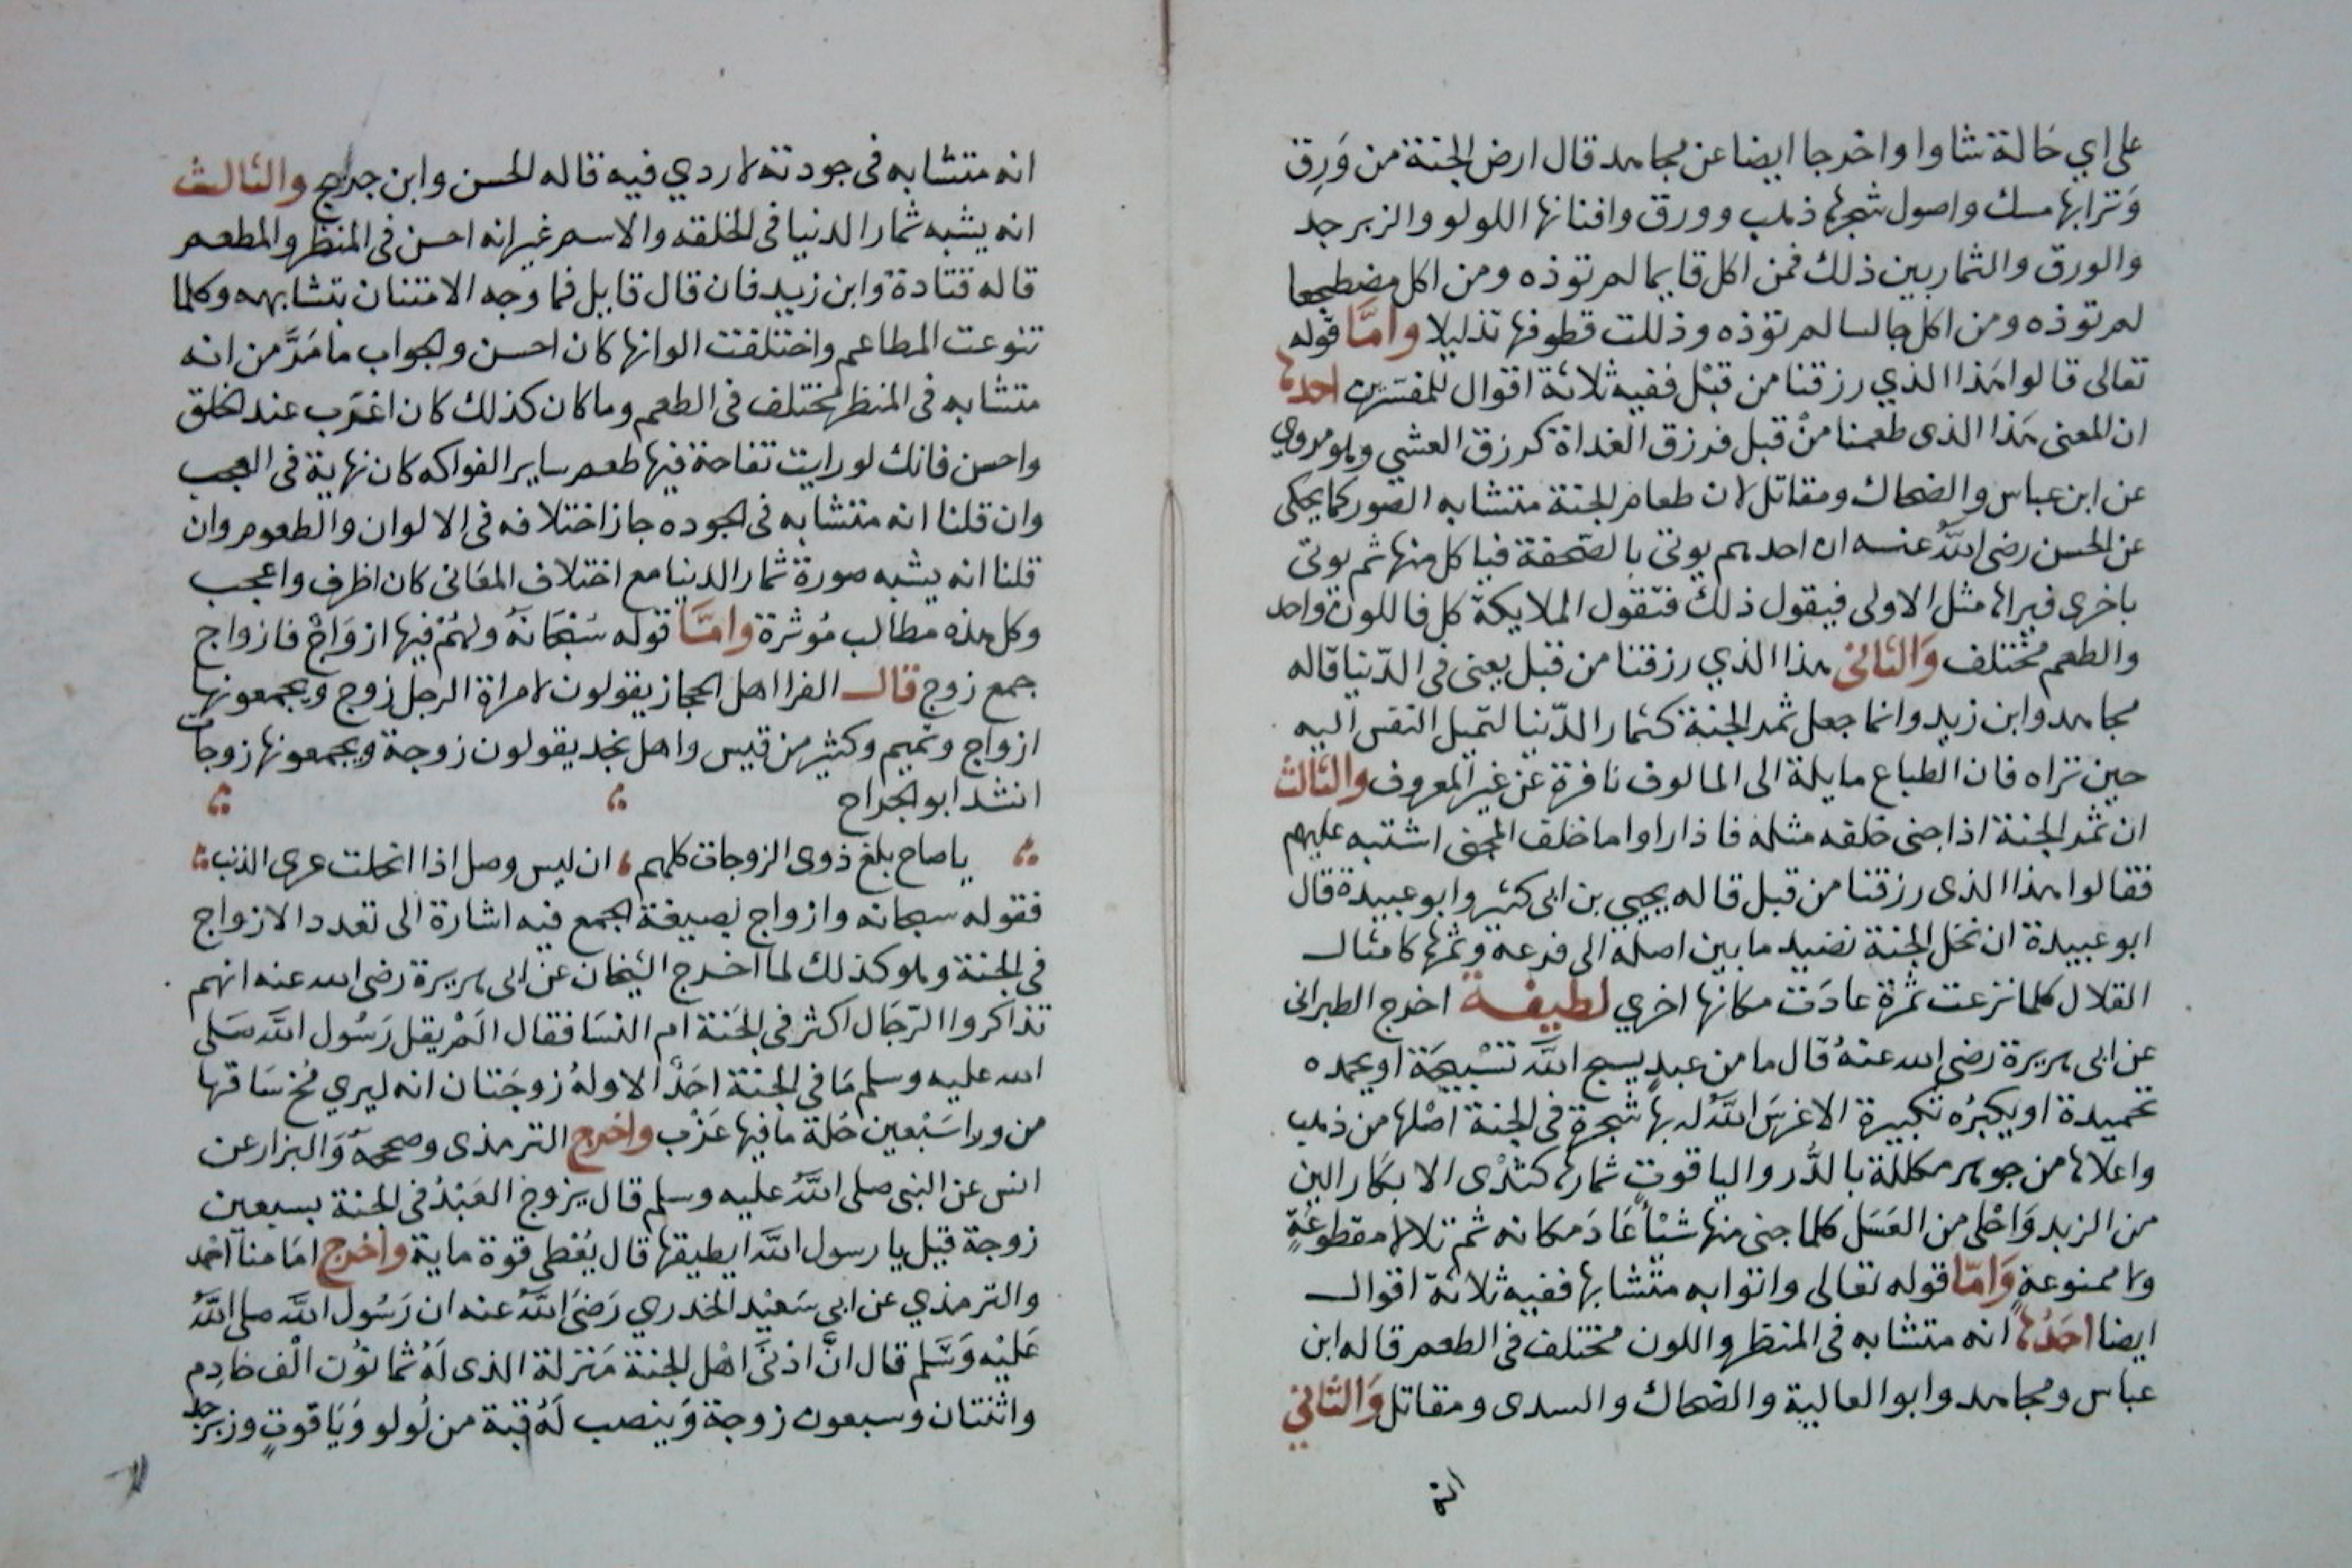 على اي حالة شاوا واخرجا ايضا عن مجاهد قال ارض الجنة من وَرِق
وَترابها مسك واصول شجرها ذهب وورق وافنانها اللولو والزبرجد
والورق والثمار بين ذلك فمن اكل قايما لم توذه ومن اكل مضطجعا
لم توذه ومن اكل جالسا لم توذه وذللت قطوفها تذليلا وامَّا قوله
تعالى قالوا هَذا الذي رزقنا من قبْل ففيه ثلاثة اقوال للمفسّرين احدها
ان المعنى هَذا الذى طعمنا منْ قبل فرزق الغداة كرزق العشي وهو مروي
عن ابن عباس والضحاك ومقاتل لان طعام الجنة متشابه الصور كما يحكى
عن الحسن رضى اللهُ عنه ان احدهم يوتى بالصّحفة فياكل منها ثم يوتى
باخرى فيراها مثل الاولى فيقول ذلك فتقول الملايكة كل فاللون واحد
والطعم مختلف وَالثانى هذا الذي رزقنا من قبل يعنى فى الدّنيا قاله
مجاهد وابن زيد وانما جعل ثمر الجنة كثمار الدّنيا لتميل النفس اليه
حين تراه فان الطباع مايلة الى المالوف نافرة عن غير المعروف والثالث
ان ثمر الجنة اذا جنى خلقه مثله فاذا راوا ما خلف المجنى اشتبه عليهم
فقالوا هذا الذى رزقنا من قبل قاله يحيى بن ابى كثير وابو عبيدة قال
ابو عبيدة ان نخل الجنة نضيد ما بين اصله الى فرعه وثمرها كامثال
القلال كلما نزعت ثمرة عادَت مكانها اخري لطيفة اخرج الطبرانى
عن ابى هريرة رضى الله عنهُ قال ما من عبدٍ يسبح اللهَ تسْبيحَة او يحمده
تحميدة او يكبرُه تكبيرة الا غرسَ اللهُ له بها شجرة فى الجنة اصْلها من ذهب
واعلاها من جوهر مكللة بالدُّر والياقوتِ ثمارها كثدْى الابكار الين
من الزبد وَاحْلى من العَسَل كلما جنى منها شيْأ عَادَ مكانه ثم تلا لا مقطوعَةٍ
ولا ممنوعةٍ وَامّا قوله تعالى واتوا به متشابها ففيه ثلاثة اقوال
ايضا احَدُها انه متشابه فى المنظر واللون مختلف فى الطعم قاله ابن
عباس ومجاهد وابو العالية والضحاك والسدى ومقاتل وَالثاني
انه
انه متشابه فى جودته لا ردي فيه قاله الحسن وابن جريج والثالث
انه يشبه ثمار الدنيا فى الخلقه والاسم غير انه احسن فى المنظر والمطعم
قاله قتادة وابن زيد فان قال قايل فما وجه الامتنان بتشابهه وكلما
تنوعت المطاعم واختلفت الوانها كان احسن والجواب ما مَرَّ من انه
متشابه فى المنظر مختلف فى الطعم وما كان كذلك كان اغرَب عند الخلق
واحسن فانك لو رايت تفاحة فيها طعم ساير الفواكه كان نهاية فى العجب
وان قلنا انه متشابه فى الجوده جاز اختلافه فى الالوان والطعوم وان
قلنا انه يشبه صورة ثمار الدنيا مع اختلاف المعَانى كان اظرف واعجب
وكل هذه مطالب مُوثرة وامَّا قوله سُبْحَانَهُ ولهُمْ فيها ازوَاجْ فازواج
جمع زوج قال الفرا اهل الحجاز يقولون لامراة الرجل زوج ويجمعونها
ازواج وتميم وكثير من قيس واهل نجد يقولون زوجة ويجمعونها زوجات
انشد ابو الجراح
يا صاح بلغ ذوى الزوجات كلهم ، ان ليس وصل اذا انحلت عرى الذنب
فقوله سبحانه وازواج بصيغة الجمع فيه اشارة الى تعدد الازواج
فى الجنة وهو كذلك لما اخرج الشيخان عن ابى هريرة رضى الله عنه انهم
تذاكروا الرّجَال اكثر فى الجَنة ام النسَا فقال المْ يقل رَسُول اللهَ صَلى
الله عليه وسلم مَا فى الجنة احَدٌ الا ولهُ زوجَتان انه ليري مُخ سَاقها
من ورا سَبْعين حُلة ما فيها عَزْب واخرج الترمذى وصححهُ وَالبزار عن
انس عن النبى صلى اللهُ عليه وسلم قال يزوج العَبْدُ فى الجنة بسبعين
زوجة قيل يا رسول اللهَ ايطيقها قال يُعْطى قوة ماية واخرج امَامنا احْمد
والترمذي عن ابى سَعيْد الخدري رَضىَ اللهُ عنه ان رَسُول اللهَ صلى اللهُ
عَليْه وَسَّلم قال انَّ ادنىَ اهْل الجنة مَنزلة الذى لهُ ثمانوُن الْف خادِم
واثنتان وسبعون زوجة وَينصب لهُ قبة من لُولو وَيَاقوتٍ وزبرجد